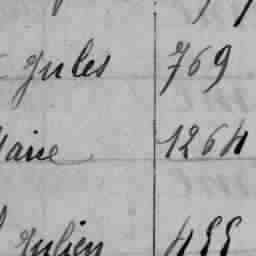 Jules 769
Marie 1264
Julien 455